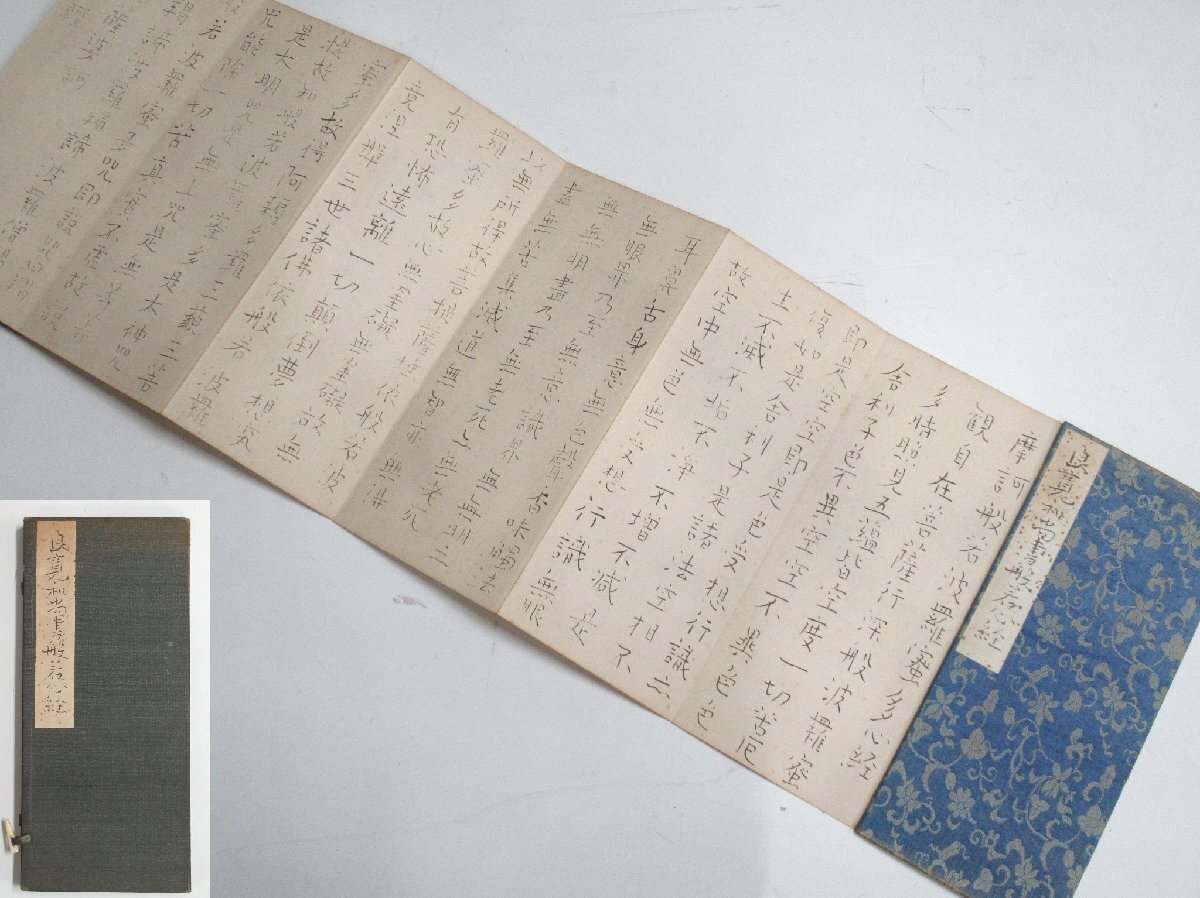 良寛和尚書般若心経
摩訶般若波羅蜜多心経
観自在菩薩行深般波羅蜜
多時照見五蘊皆空度一切苦厄
舎利子色不異空空不異色色
即是空空即是色受想行識亦
復如是舎利子是諸法空相不
生不滅不垢不浄不増不減是
故空中無色無受想行識無眼
耳鼻舌身意無色聲香味觸法
無眼界乃至無意識界無無明亦
無無明盡乃至無老死亦無老死
盡無苦集滅道無智亦無得
以無所得故菩提薩埵依般若波
羅蜜多故心無罣礙無罣礙故無
有恐怖遠離一切顛倒夢想究
竟涅槃三世諸佛依般若波羅
蜜多故得阿耨多羅三藐三菩
提故知般若波羅蜜多是大神咒
是大明咒是無上咒是無等等
咒能除一切苦真実不虚故説
般若波羅蜜多咒即説咒曰羯
諦 波羅羯諦波羅僧羯
薩婆訶
良寛和尚書般若心経